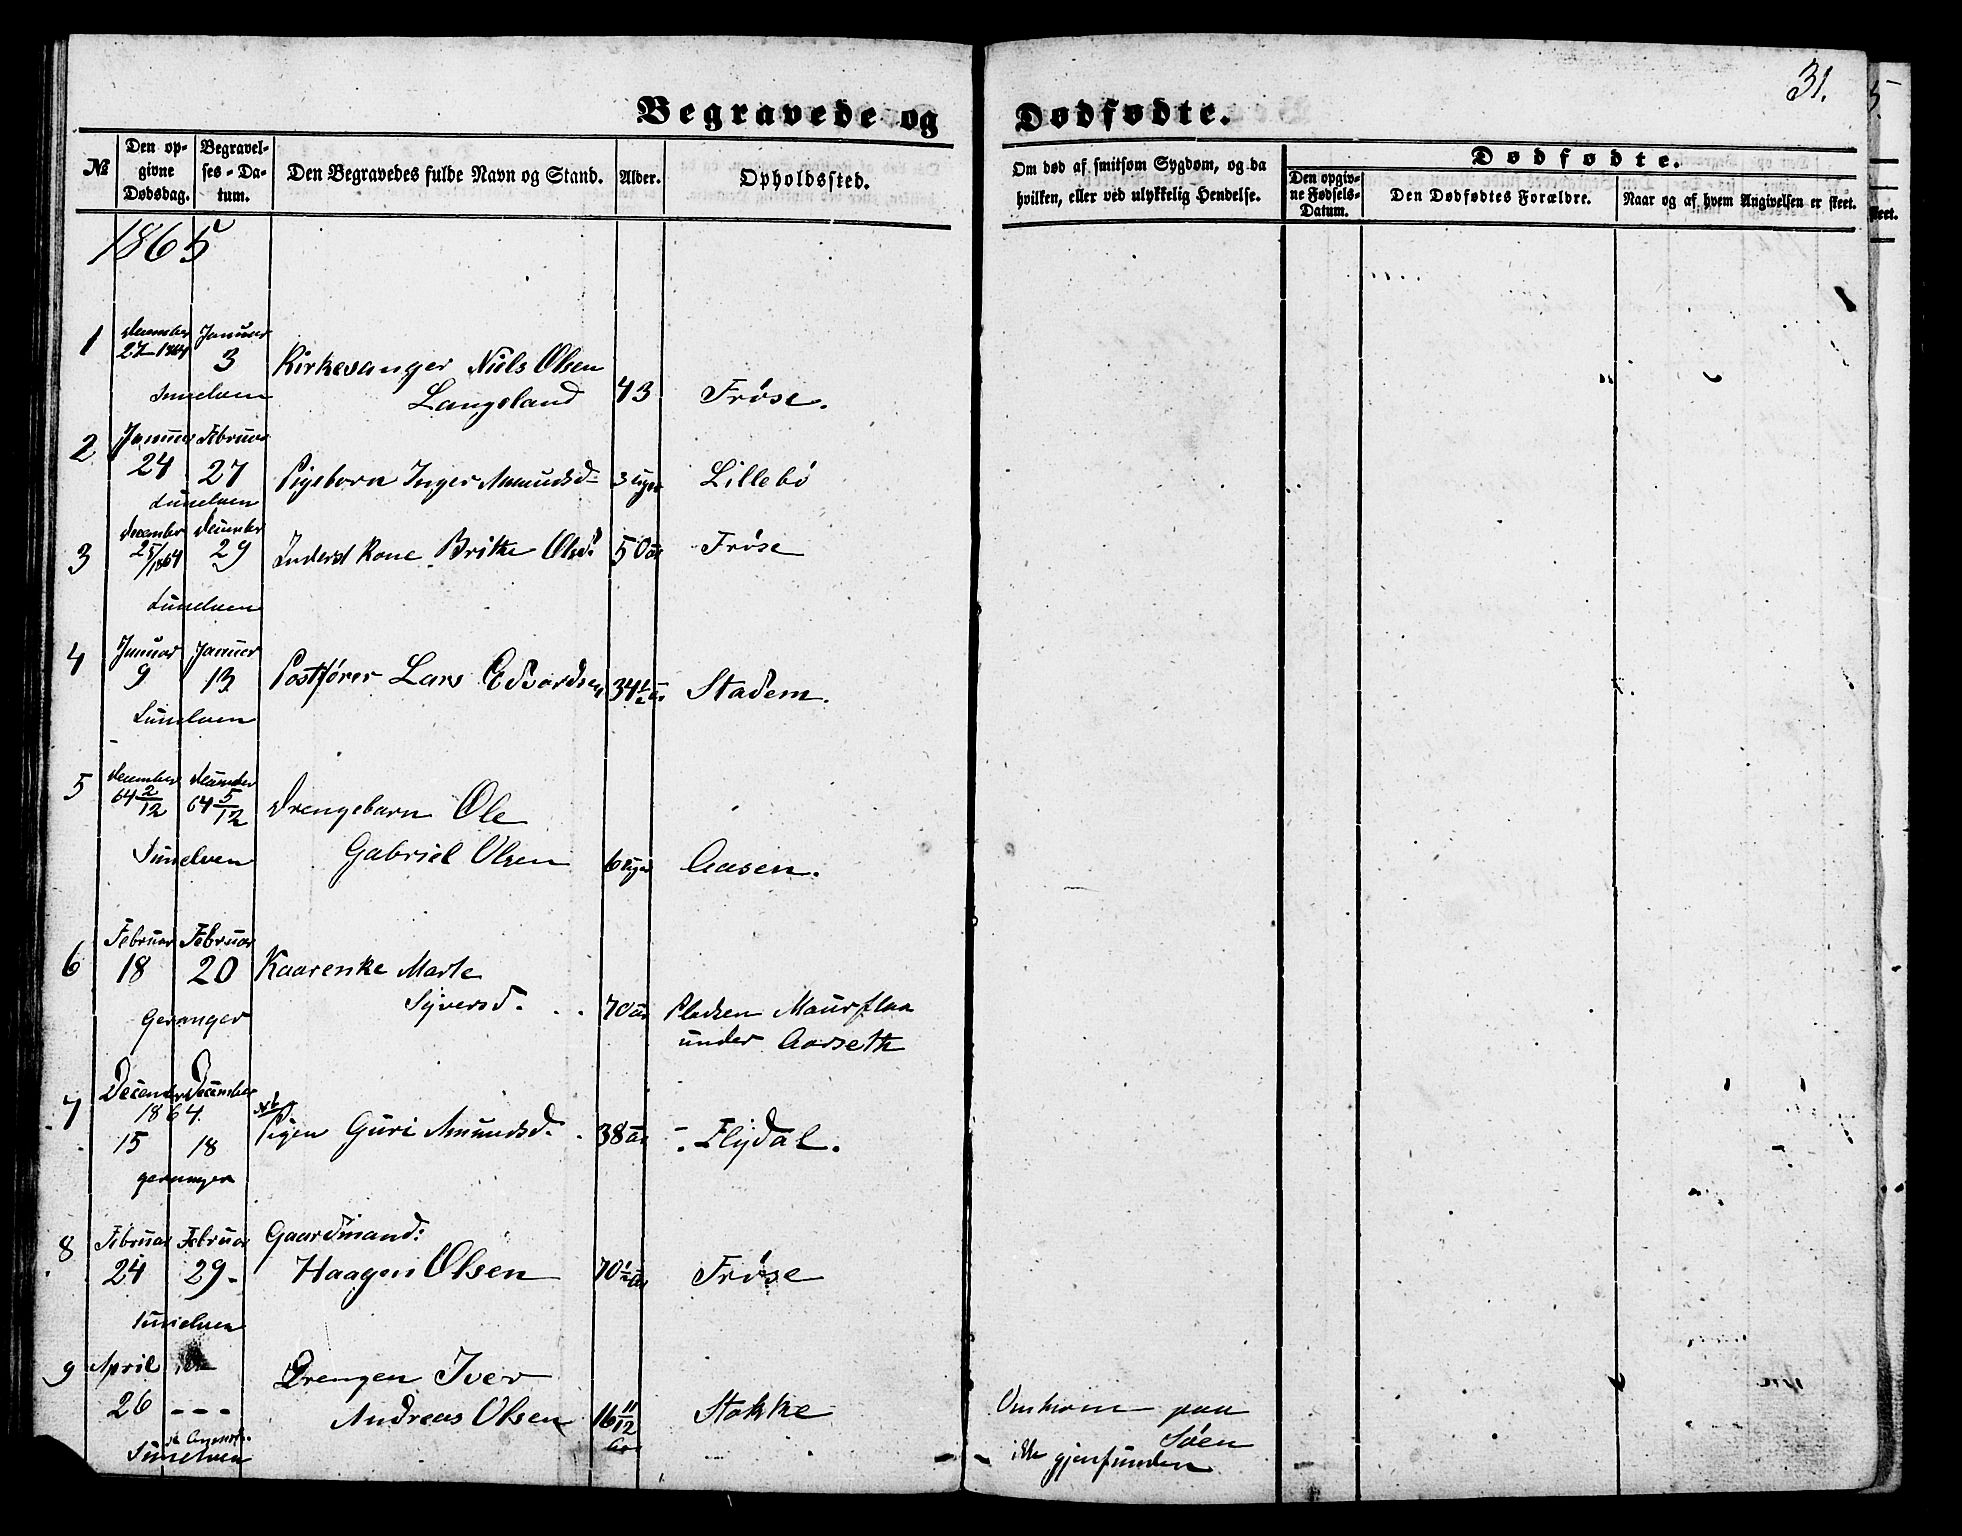 31.
Begravede og Dødfødte.
№
Den opgivne Dødsdag.
Begravelses-Datum.
Den Begravedes fulde Navn og Stand.
Alder.
Opholdssted.
Om død af smitsom Sygdom, og da hvilken, eller ved ulykkelig Hendelse.
Dødfødte.
Den opgivne Fødsels-Datum.
Den Dødfødtes Forældre.
Naar og af hvem Angivelsen er skeet.
1865
1 December 27 1864 Januar 3 Kirkesanger Niels Olsen
Langeland 43 Frøse.
Sunelven
2 Januar 24 Februar 27 Pigebarn Inger Amundsd. 3 Uger Lillebö
Sunelven
3 December 25/1864 December 29 Inderst Kone Brithe Olsd. 50 Aar Frøse
Sunelven
4 Januar 9 Januar 13 Postfører Lars Edvardsen 34 1/2 Aar Stadem.
Sunelven
5 December 64 2/12 December 64 5/12 Drengebarn Ole
Gabriel Olsen 6 Uger Aasen.
Sunelven
6 Februar 18 Februar 20 Kaarenke Marte
Syversd. 70 Aar Pladsen Maurflaa
Geranger under Aarseth
7 December December
1864.
15 18 Nb Pigen Guri Amundsd. 38 Aar Flydal.
geranger
8 Februar 24 Februar 29 Gaardmand:
Haagen Olsen 70 1/2 Aar Frøse
Sunelven
9 April 26 - - - Drengen Iver
Andreas Olsen 16 11/12 Aar Stokke Omkom paa
Søen
ikke gjenfunden
Sunelven